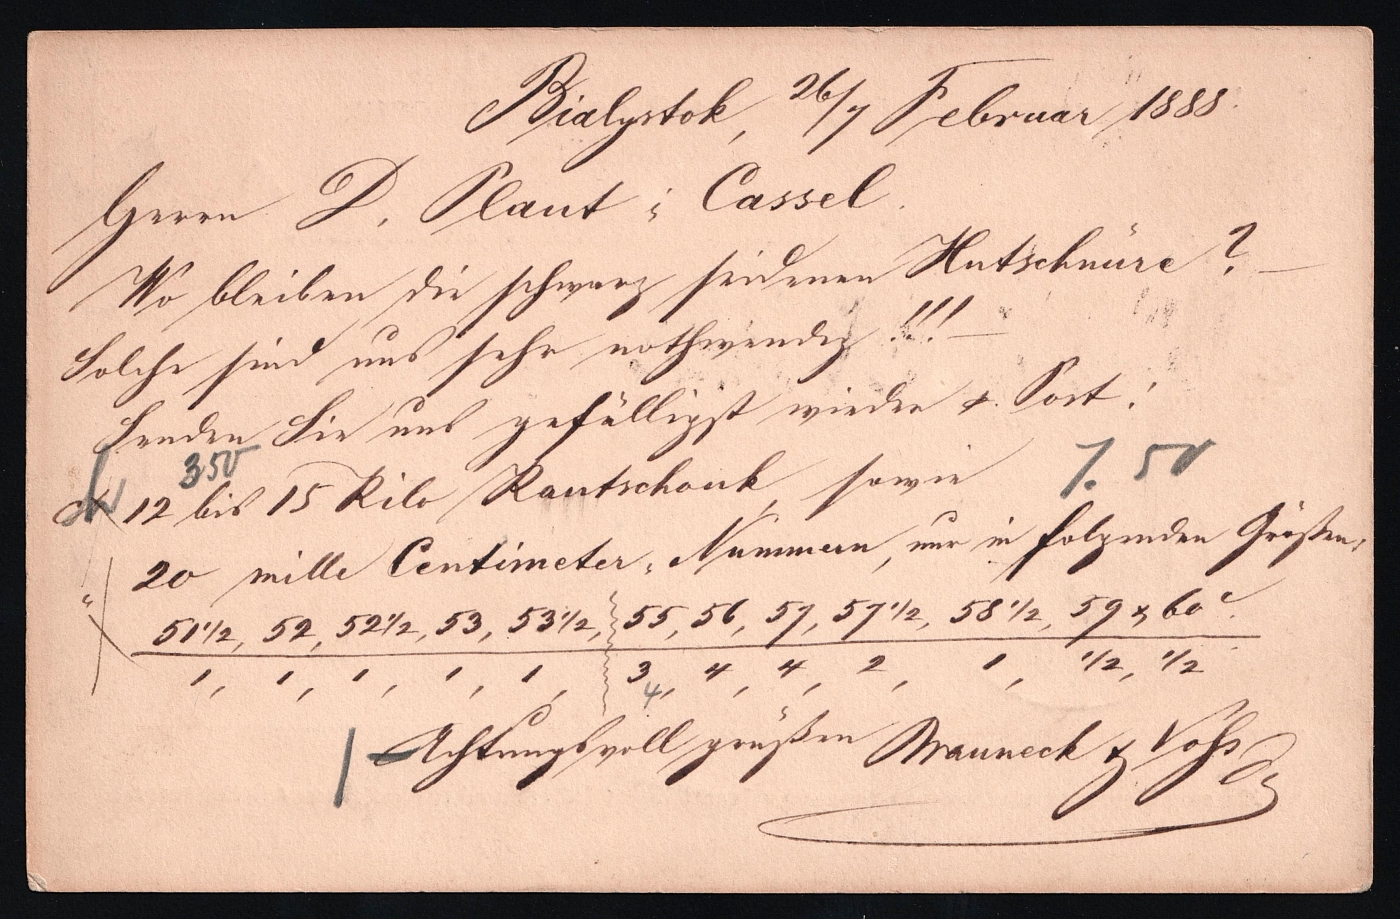 Bialystok, 26/7 Februar 1888.
Herrn D. Plaut i. Cassel.
Wo bleiben die schwarz seidenen Hutschnüre? —
Solche sind uns sehr nothwendig!!! —
Senden Sie uns gefälligst wieder p. Post:
350 7. 50
12 bis 15 Kilo Kautschouk, sowie
20 mille Centimeter-Nummern, nur in folgenden Größen,
51 1/2, 52, 52 1/2, 53, 53 1/2, 55, 56, 57, 57 1/2, 58 1/2, 59 & 60c.
1, 1, 1, 1, 1, 3, 4, 4, 2, 1, 1/2, 1/2
4
Achtungsvoll grüßen Brauneck & Vohs